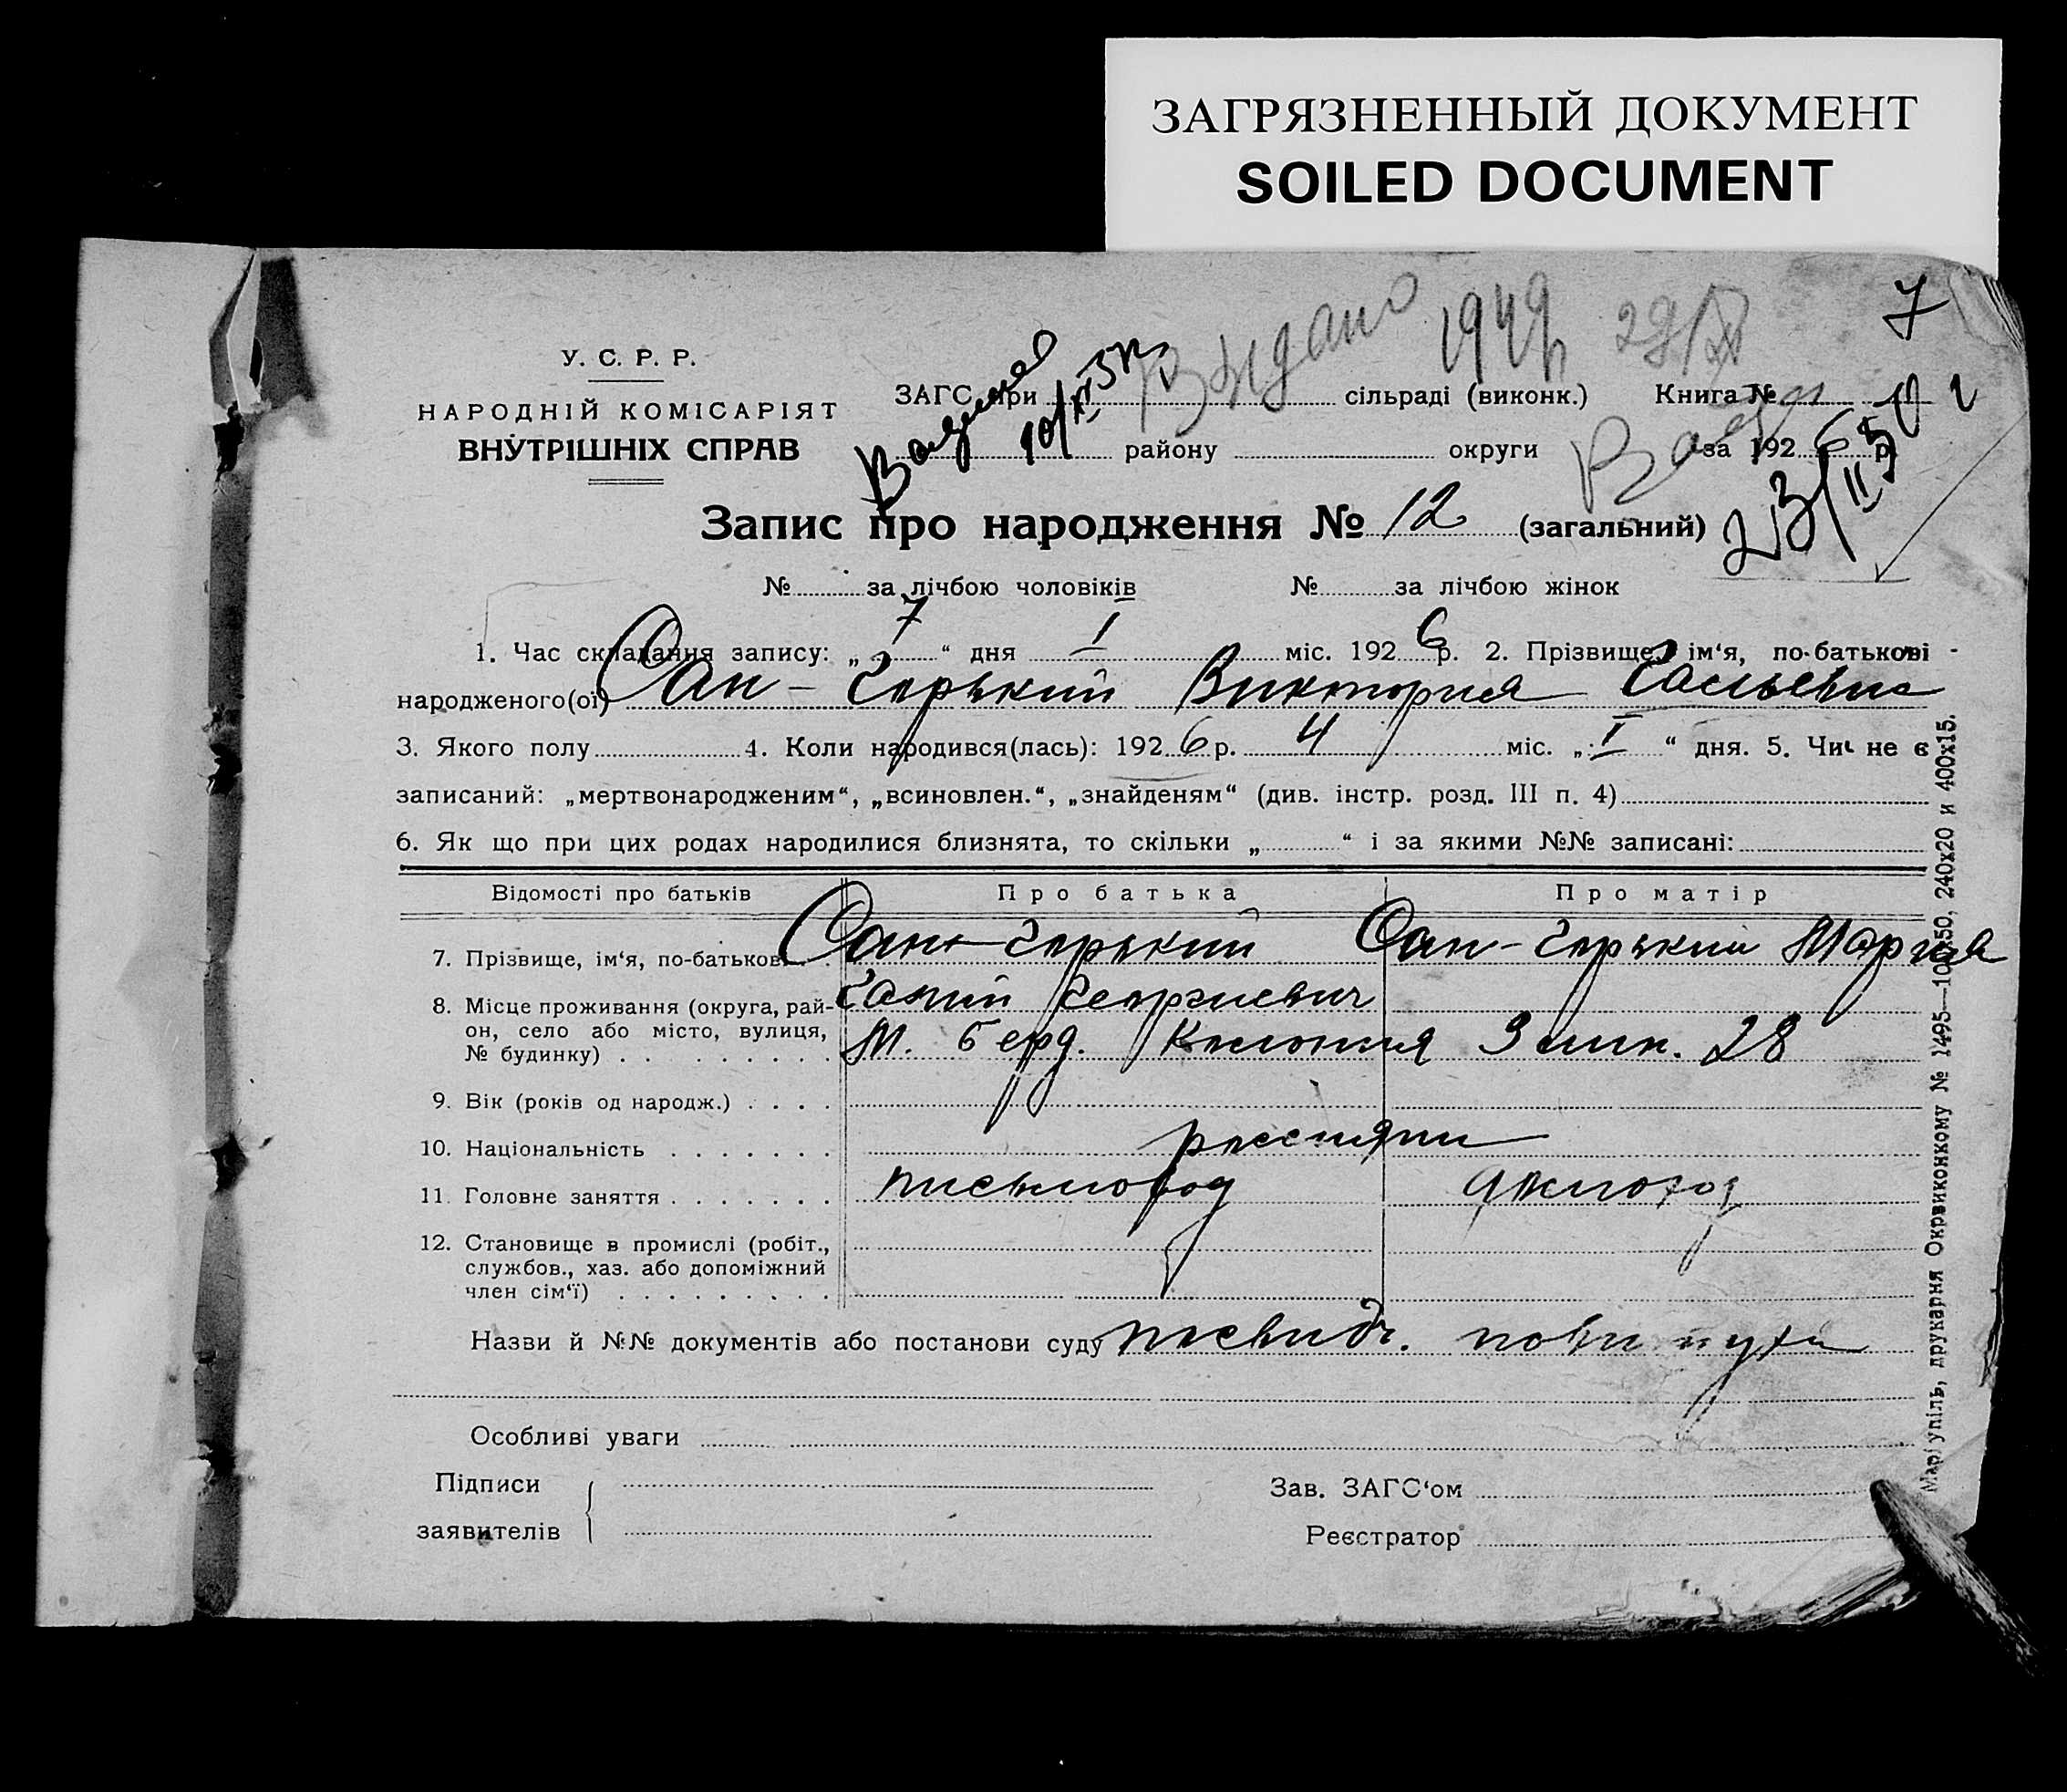 ЗАГРЯЗНЕННЫЙ ДОКУМЕНТ
SOILED DOCUMENT
7
Видано 1949
У. С. Р. Р.
НАРОДНІЙ КОМІСАРІЯТ
ВНУТРІШНІХ СПРАВ
ЗАГС при сільраді (виконк.) Книга №
району округи за 1926 р.
Запис про народження № 12 (загальний)
№ за лічбою чоловіків № за лічбою жінок
1. Час складання запису: „7“ дня I міс. 1926 р. 2. Прізвище, ім‘я, по-батькові
народженого(ої) Сан- Виктория
3. Якого полу 4. Коли народився(лась): 1926 р. 4 міс. „I“ дня. 5. Чи не є
записаний: „мертвонародженим“, „всиновлен.“, „знайденям“ (див. інстр. розд. III п. 4)
6. Як що при цих родах народилися близнята, то скільки „ “ і за якими №№ записані:
Відомості про батьків Про батька Про матір
7. Прізвище, ім‘я, по-батькові Мария
Георгиевич
8. Місце проживання (округа, рай-
он, село або місто, вулиця,
№ будинку) М. Берд. Колония 28
9. Вік (років од народж.)
10. Національність россияни
11. Головне заняття
12. Становище в промислі (робіт.,
службов., хаз. або допоміжний
член сім‘ї)
Назви й №№ документів або постанови суду посвидч.
Особливі уваги
Підписи
заявителів
Зав. ЗАГС‘ом
Реєстратор
Маріупіль, друкарня Окрвиконкому № 1495—10х50, 240х20 и 400х15.